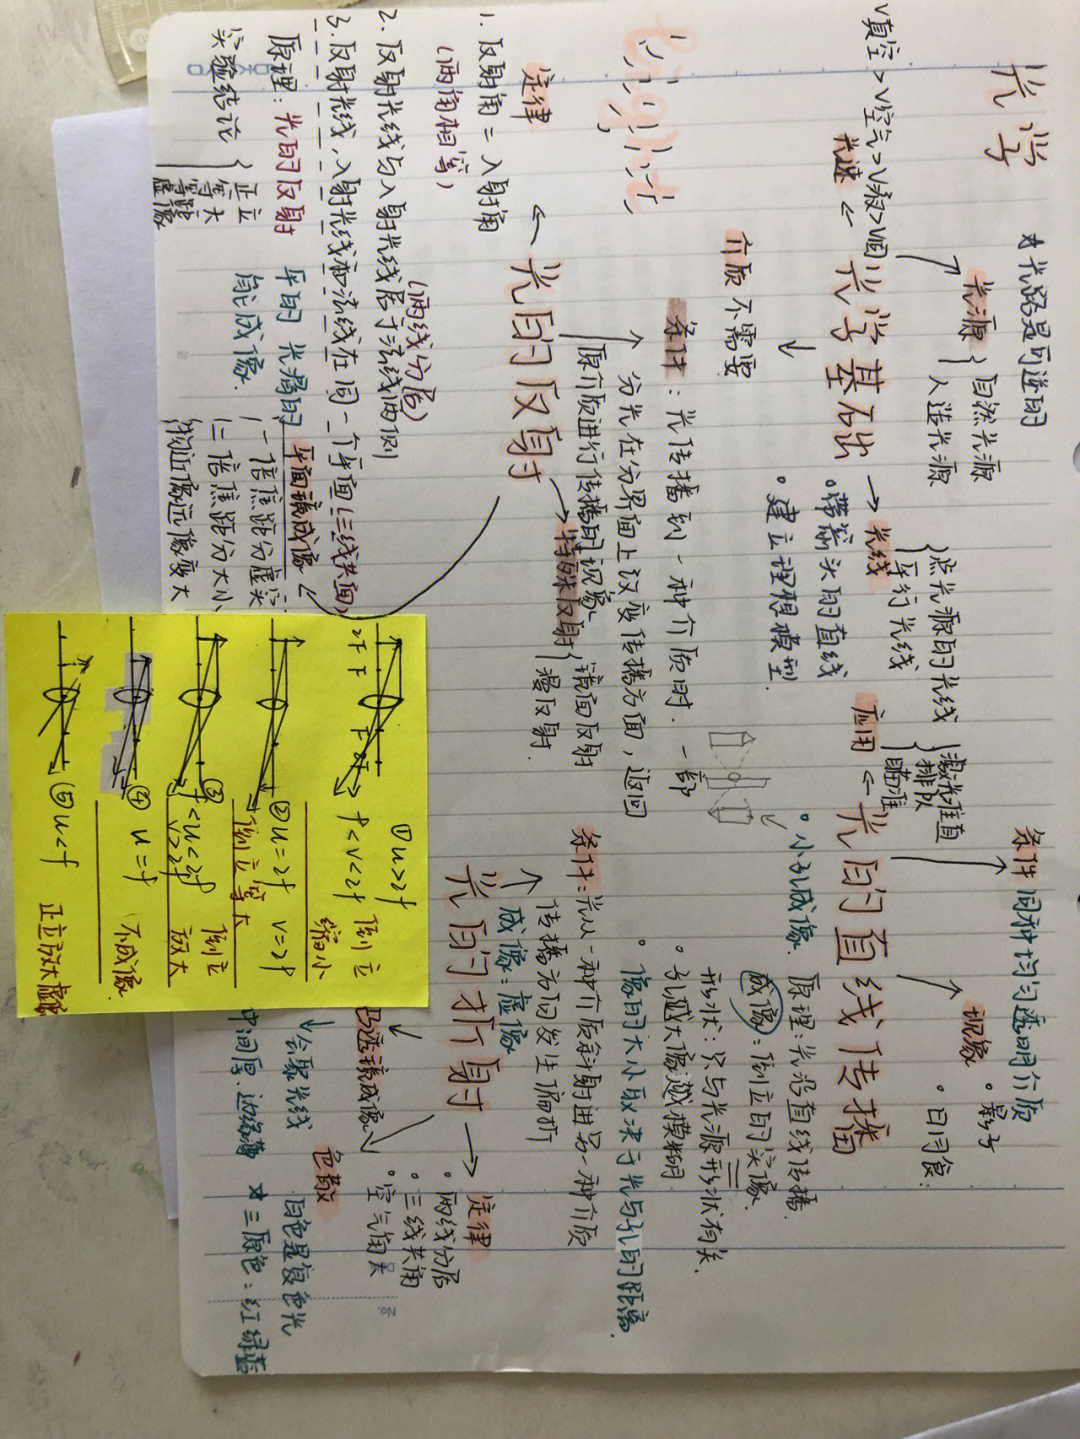 光学
Light
*光路是可逆的
光学基础
光速
V真空>V空气>V液>V固
光源
自然光源
人造光源
光线
点光源的光线
平行光线
带箭头的直线
建立理想模型
介质 不需要
光的直线传播
条件 同种均匀透明介质
现象
影子
日月食
应用
激光准直
排队
瞄准
小孔成像
原理:光沿直线传播
成像:倒立的实像
形状:只与光源形状有关
孔越大像越模糊
像的大小取决于光与孔的距离
光的反射
条件:光传播到一种介质时,一部
分光在分界面上改变传播方面,返回
原介质进行传播的现象
特殊反射
镜面反射
漫反射
定律
1. 反射角=入射角
(两角相等)
2. 反射光线与入射光线居于法线两侧
(两线分居)
3. 反射光线、入射光线和法线在同一个平面(三线共面)
平面镜成像
原理:光的反射
实验结论
正立
等大
等距
虚像
光的折射
条件:光从一种介质斜射进另一种介质
传播方向发生偏折
成像:虚像
定律
两线分居
三线共面
空气角大
凸透镜成像
会聚光线
中间厚,边缘薄
一倍焦距分虚实
二倍焦距分大小
物近像远像变大
色散
白色是复色光
*三原色:红绿蓝
2F F F 2F
①u>2f
f<v<2f 倒立
缩小
②u=2f v=2f
倒立等大
③
f<u<2f
v>2f
倒立
放大
④ u=f 不成像
⑤ u<f 正立放大虚像
No.